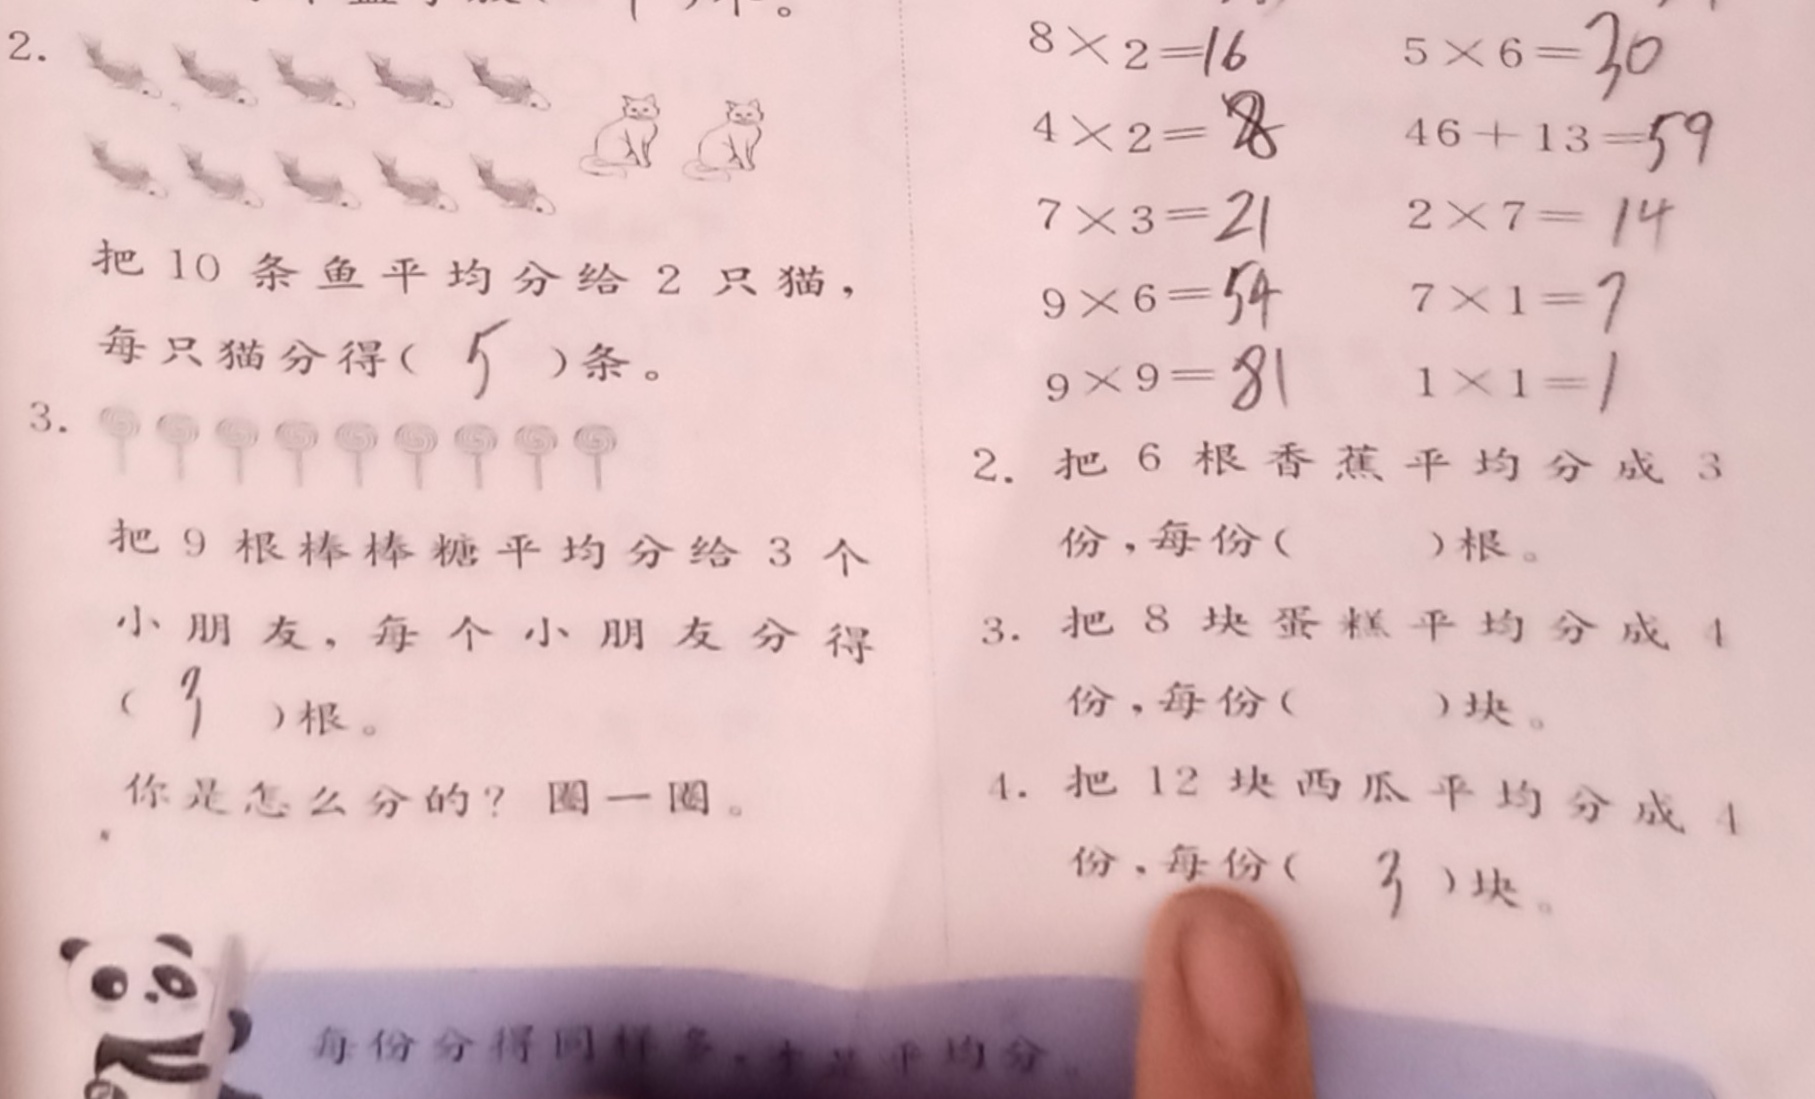 2.
把 10 条鱼平均分给 2 只猫，
每只猫分得( 5 )条。
3.
把 9 根棒棒糖平均分给 3 个
小朋友，每个小朋友分得
( 3 )根。
你是怎么分的？圈一圈。
8×2=16 5×6=30
4×2=8 46+13=59
7×3=21 2×7=14
9×6=54 7×1=7
9×9=81 1×1=1
2. 把 6 根香蕉平均分成 3
份，每份( )根。
3. 把 8 块蛋糕平均分成 4
份，每份( )块。
4. 把 12 块西瓜平均分成 4
份，每份( 3 )块。
每份分得同样多，才是平均分。